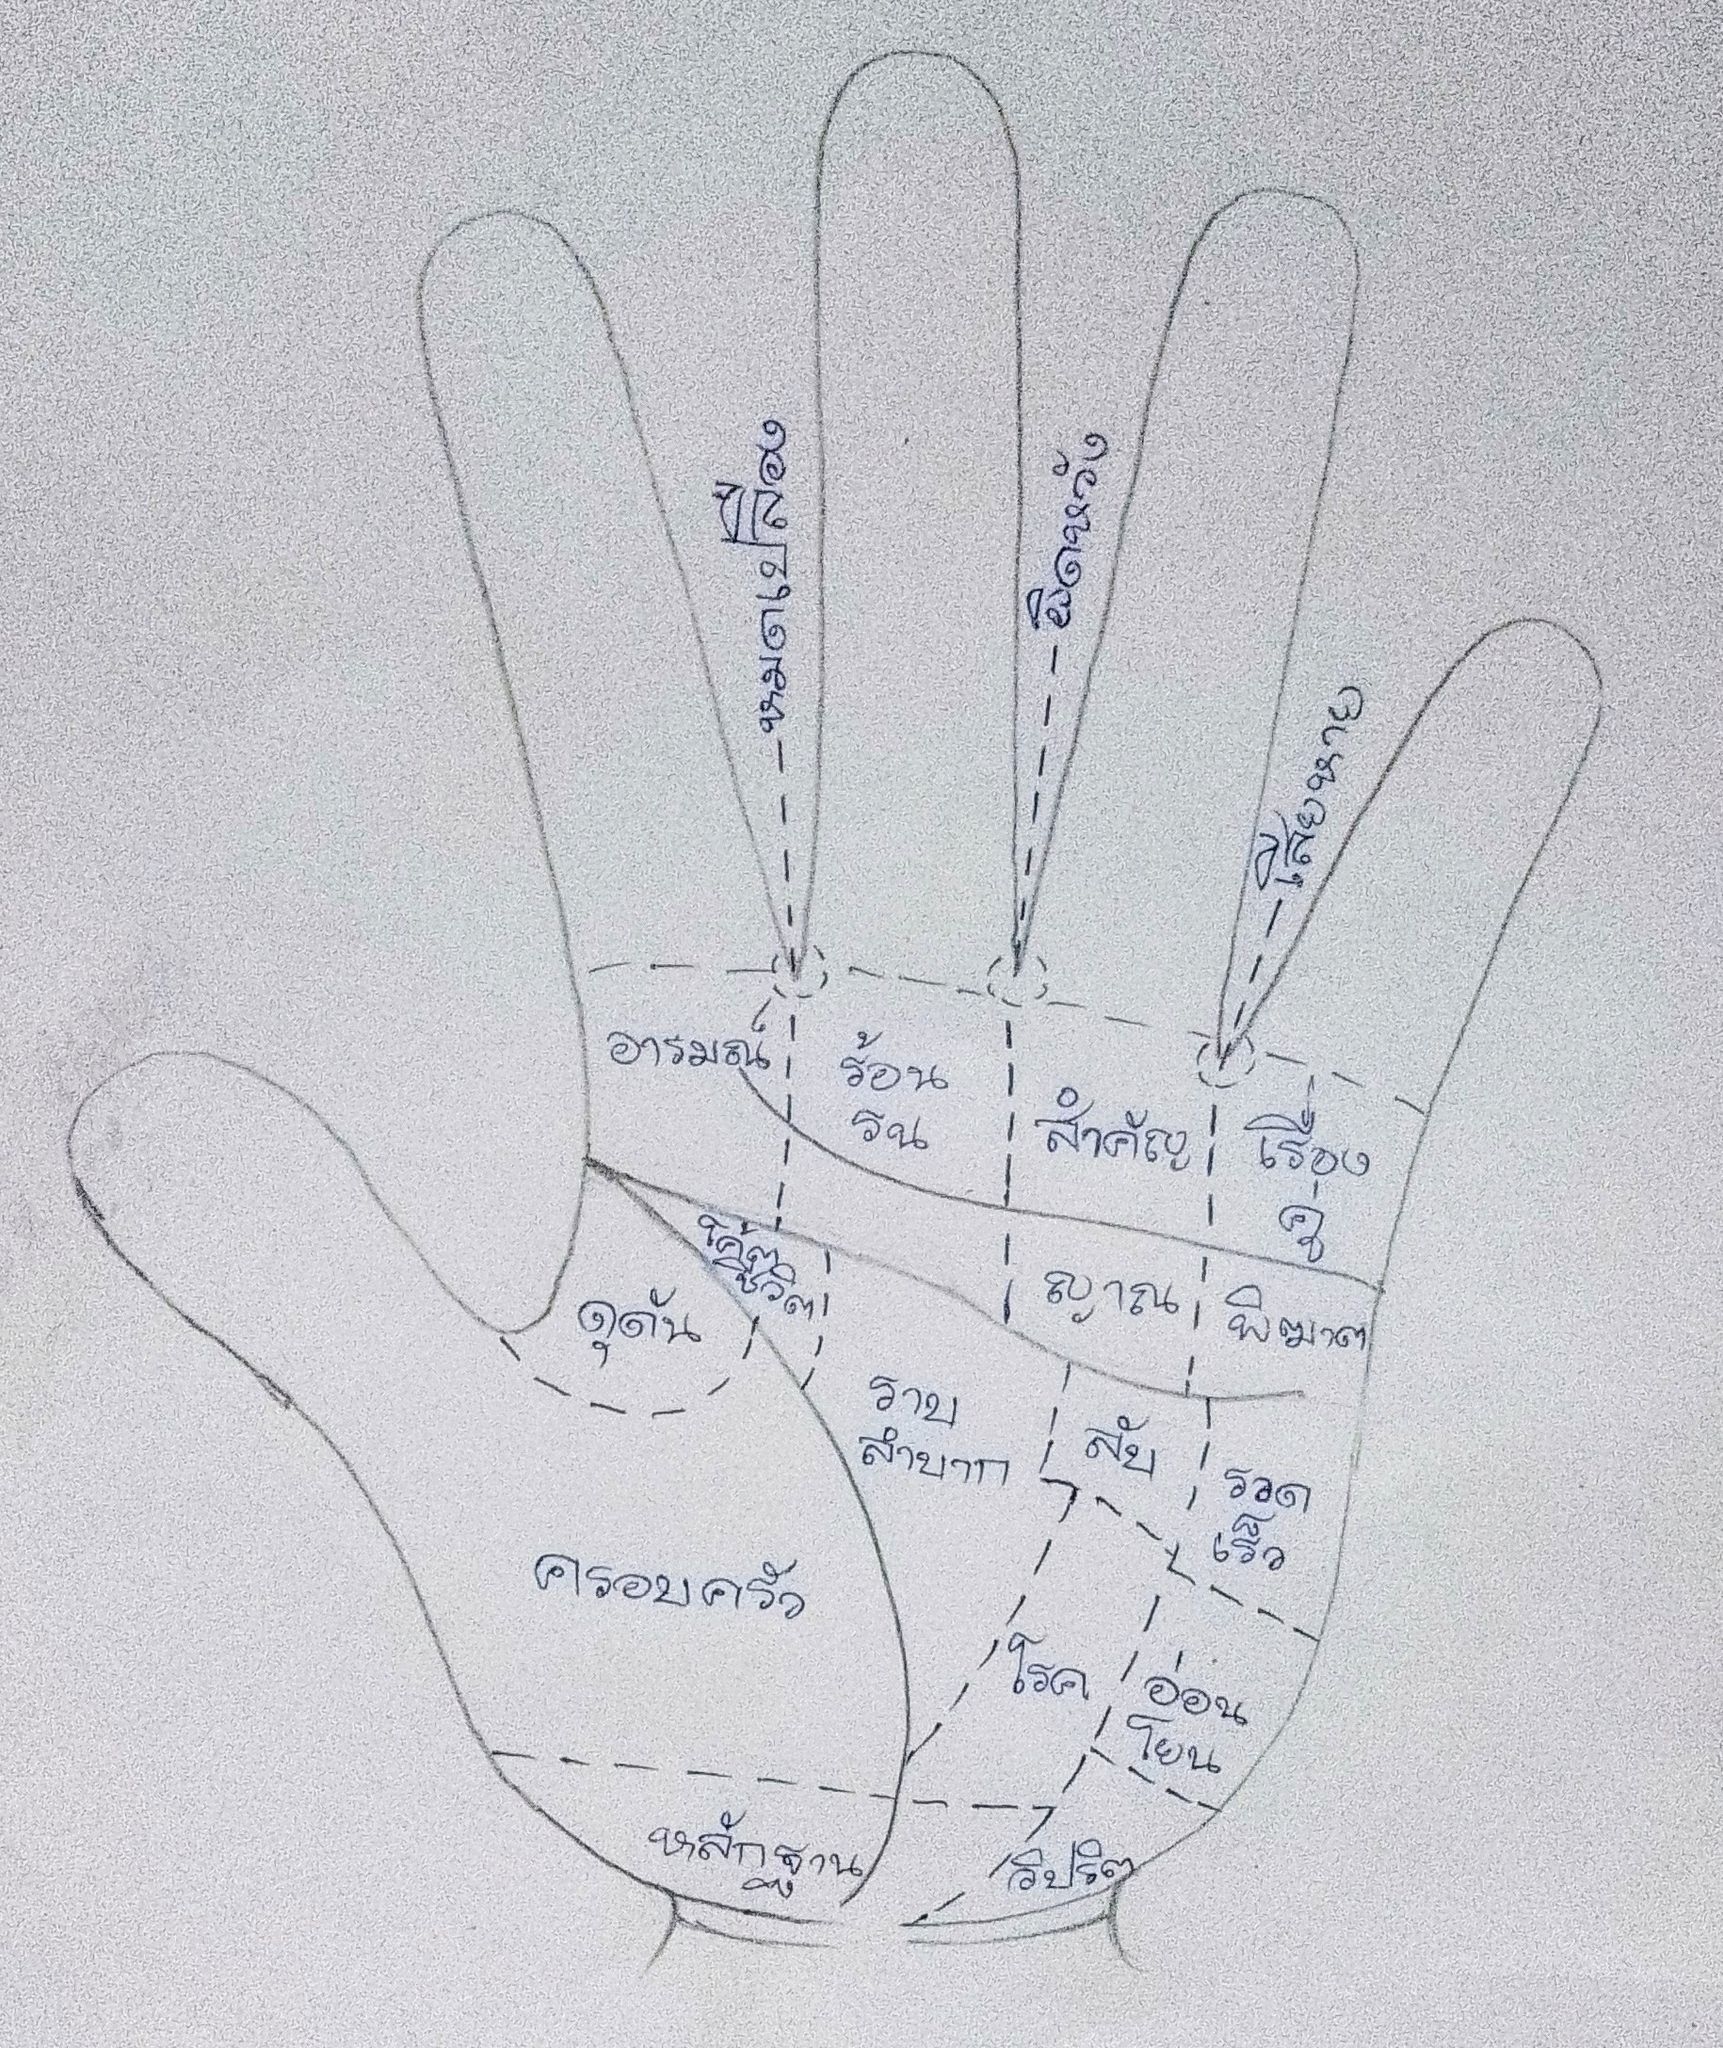 หมดเปลือง
ผิดหวัง
เสียหาย
อารมณ์
ร้อน
รน
สำคัญ
เรื่อง
คู่
โค้ต
ชีวิต
ดุดัน
ญาณ
พิฆาต
ราบ
ลำบาก
ลับ
รวด
เร็ว
ครอบครัว
โรค
อ่อน
โยน
หลักฐาน
วิปริต